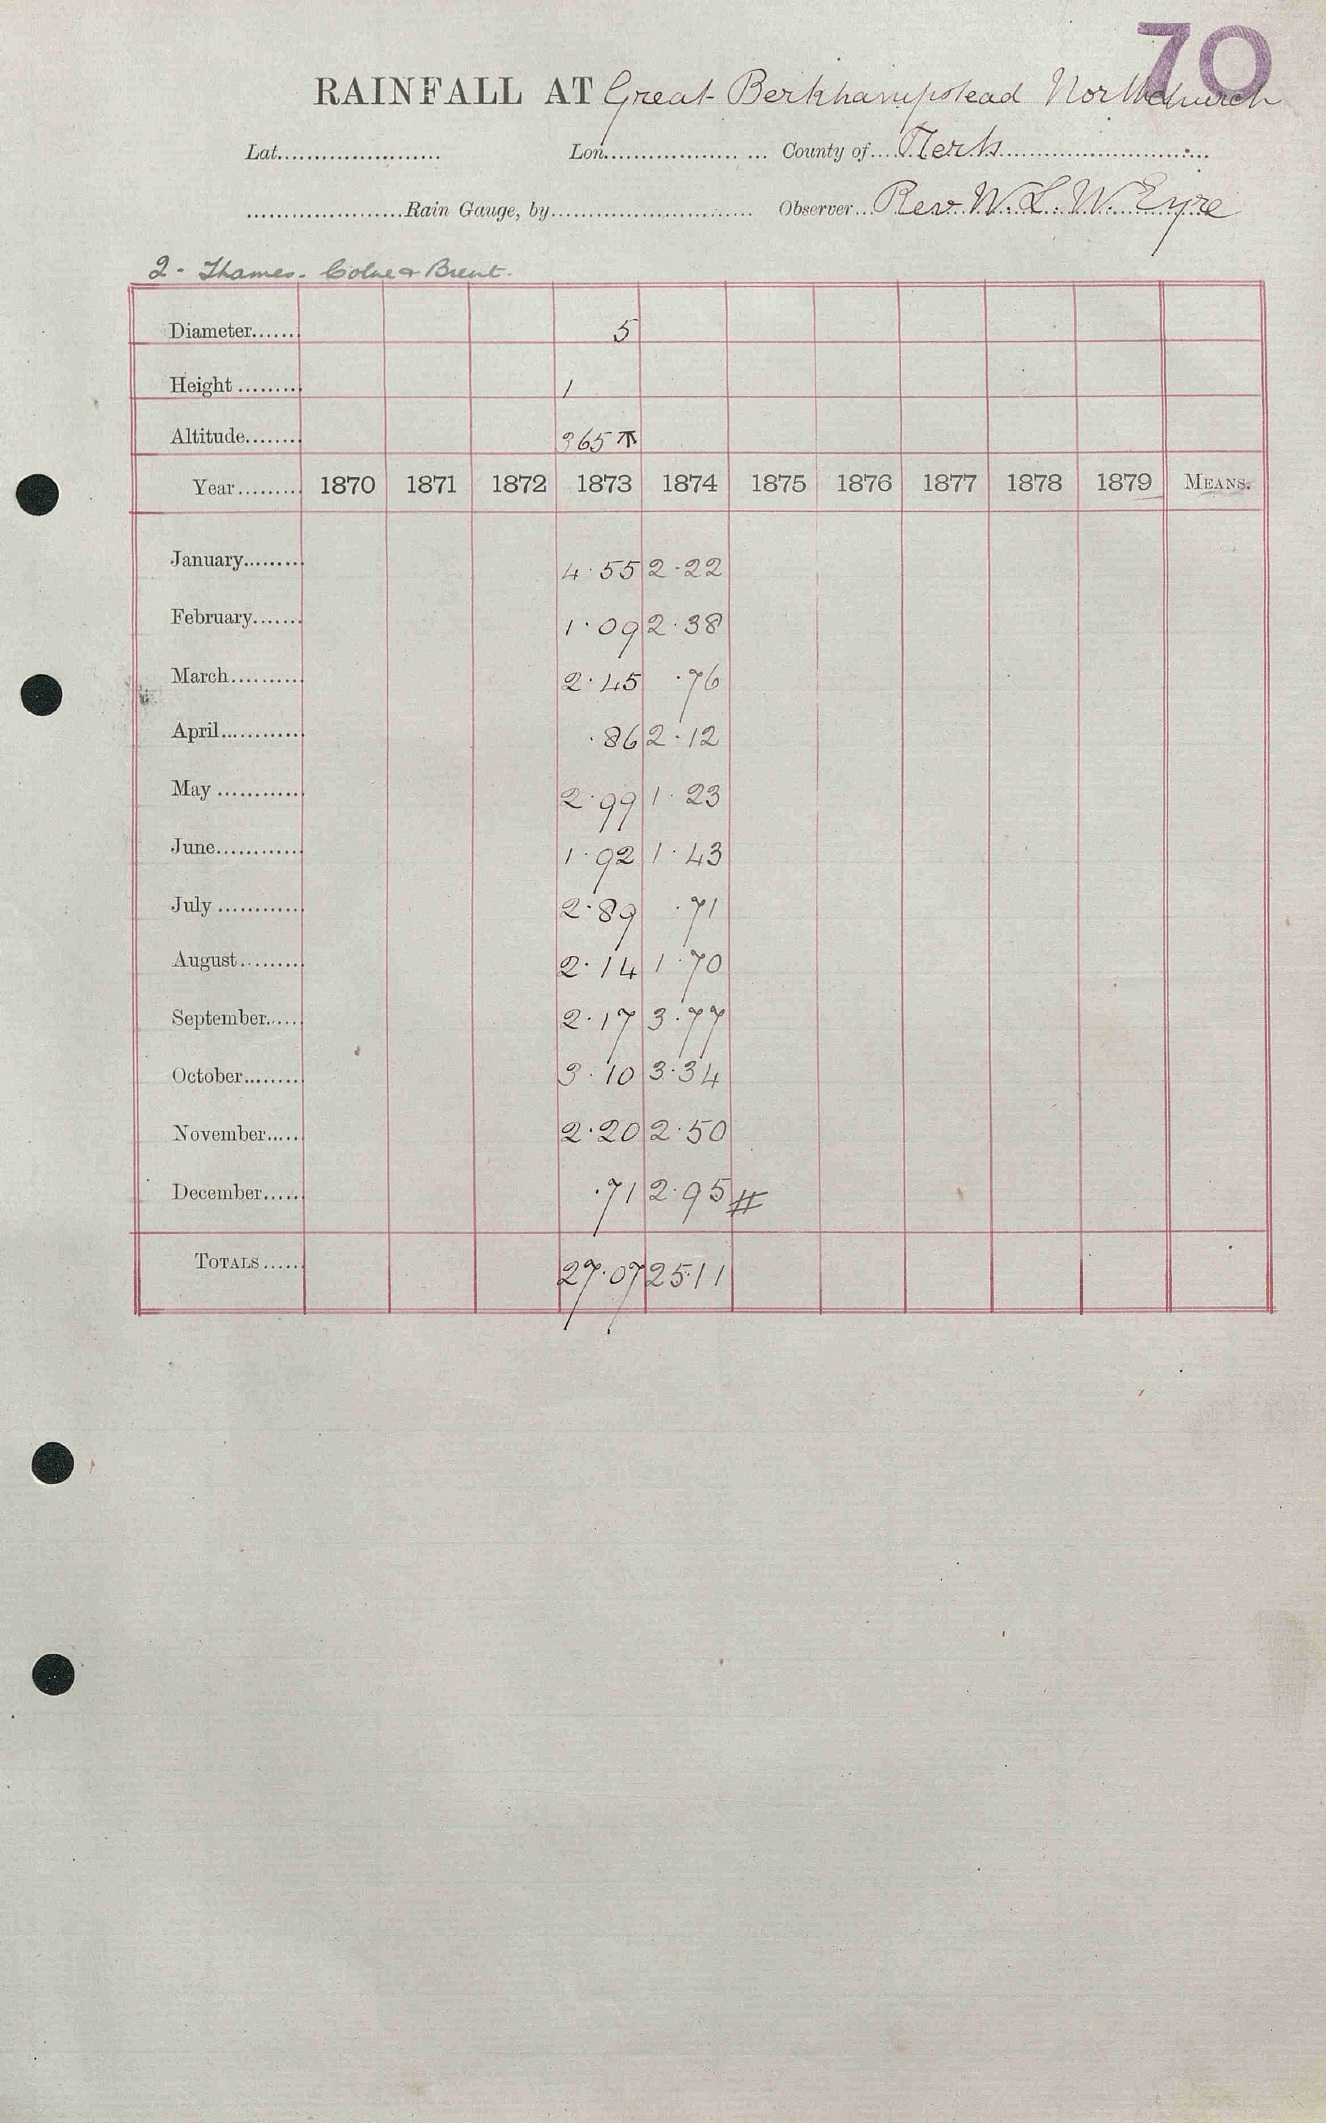 70
RAINFALL AT Great Berkhampstead Northchurch
Lat...................... Lon.................. ... County of....Herts...............................
......................Rain Gauge, by............................ Observer...Rev. W. L. W. Eyre
2 - Thames. Colne & Brent.
Diameter....... 5
Height ......... 1
Altitude........ 365 T
Year......... 1870 1871 1872 1873 1874 1875 1876 1877 1878 1879 MEANS.
January......... 4.55 2.22
February....... 1.09 2.38
March.......... 2.45 .76
April............ .86 2.12
May ............ 2.99 1.23
June............ 1.92 1.43
July ............ 2.89 .71
August......... 2.14 1.70
September..... 2.17 3.77
October........ 3.10 3.34
November..... 2.20 2.50
December..... .71 2.95 #
TOTALS..... 27.07 25.11